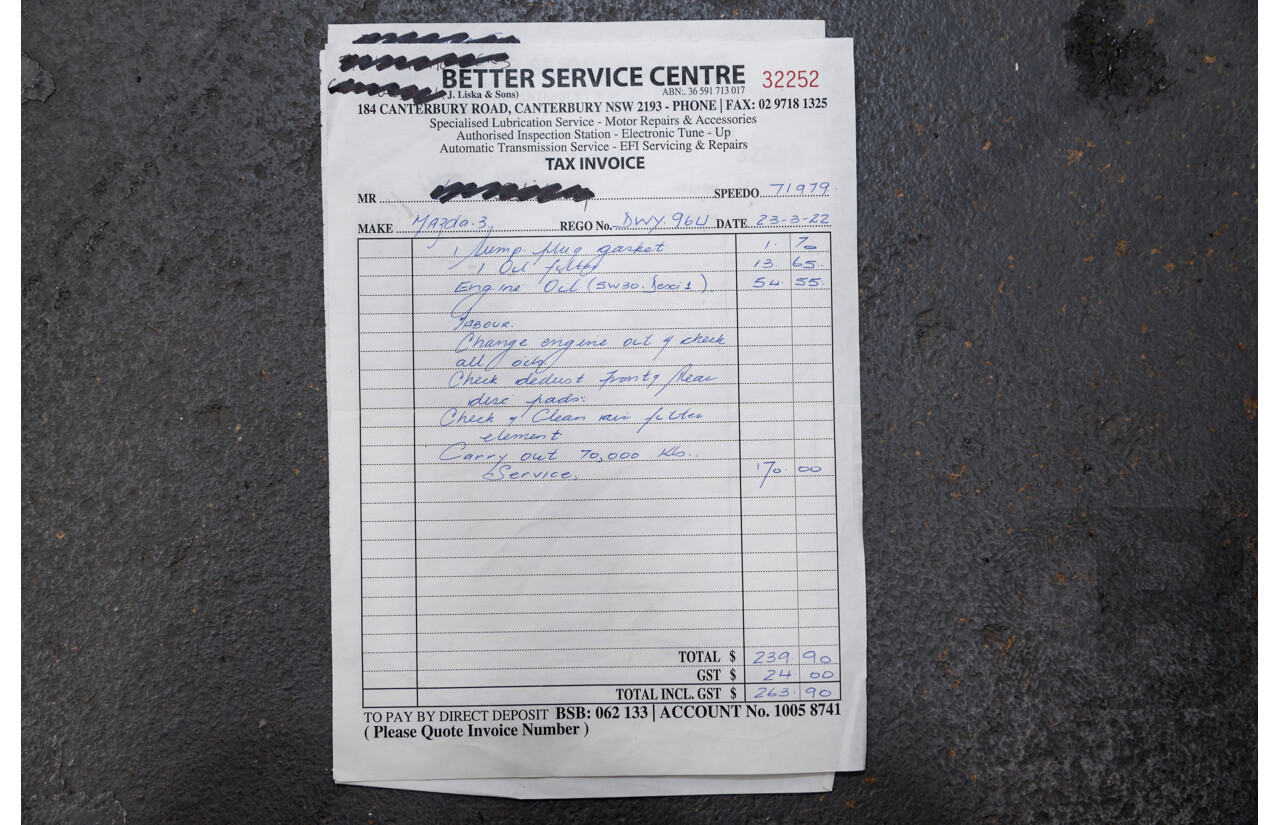 BETTER SERVICE CENTRE 32252
J. Liska & Sons) ABN:. 36 591 713 017
184 CANTERBURY ROAD, CANTERBURY NSW 2193 - PHONE | FAX: 02 9718 1325
Specialised Lubrication Service - Motor Repairs & Accessories
Authorised Inspection Station - Electronic Tune - Up
Automatic Transmission Service - EFI Servicing & Repairs
TAX INVOICE
MR SPEEDO 71979
MAKE Mazda.3, REGO No. DATE 23-3-22
1 plug gasket 1. 70
1 Oil filter 13. 65
Engine Oil (5W30. ) 54. 55
LABOUR.
Change engine oil & check
all oils
Check dedust front & Rear
disc pads.
Check & Clean air filter
element
Carry out 70,000 Kls..
Service. 170. 00
TOTAL $ 239. 90
GST $ 24. 00
TOTAL INCL. GST $ 263. 90
TO PAY BY DIRECT DEPOSIT BSB: 062 133 | ACCOUNT No. 1005 8741
( Please Quote Invoice Number )